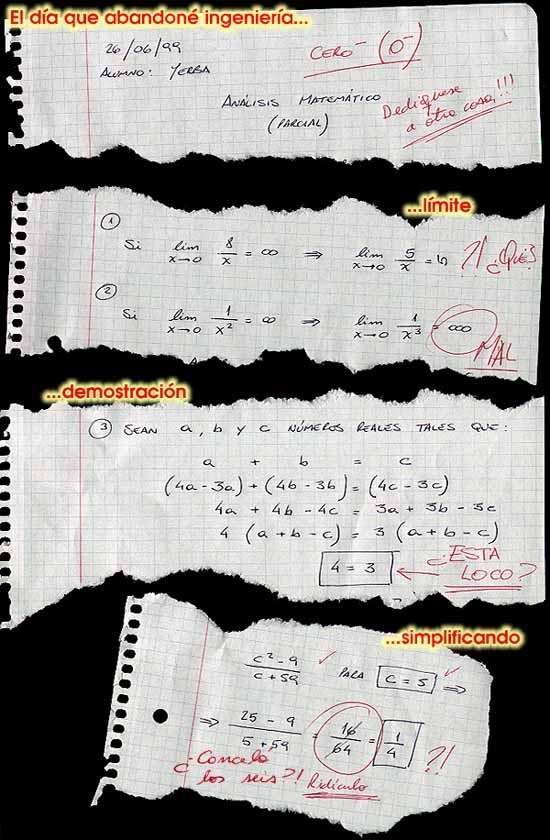 El día que abandoné ingeniería...
26/06/99
CERO⁻ (0⁻)
ALUMNO: YERBA
ANÁLISIS MATEMÁTICO
(PARCIAL)
Dedíquese
a otra cosa!!!
...límite
1
Si lim x→0 8/x = ∞ ⇒ lim x→0 5/x = ഗ ?! ¿QUÉ?
2
Si lim x→0 1/x² = ∞ ⇒ lim x→0 1/x³ = ooo
MAL
...demostración
3 SEAN a, b y c NÚMEROS REALES TALES QUE:
a + b = c
(4a-3a)+(4b-3b)=(4c-3c)
4a + 4b - 4c = 3a + 3b - 3c
4 (a+b-c) = 3 (a+b-c)
4 = 3 ← ¿ESTA
LOCO?
...simplificando
c²-9 / c+59 ✓ PARA c = 5 ✓ ⇒
⇒ 25-9 / 5+59 = 16/64 = 1/4 ?!
¿Cancela
los seis?! Ridículo